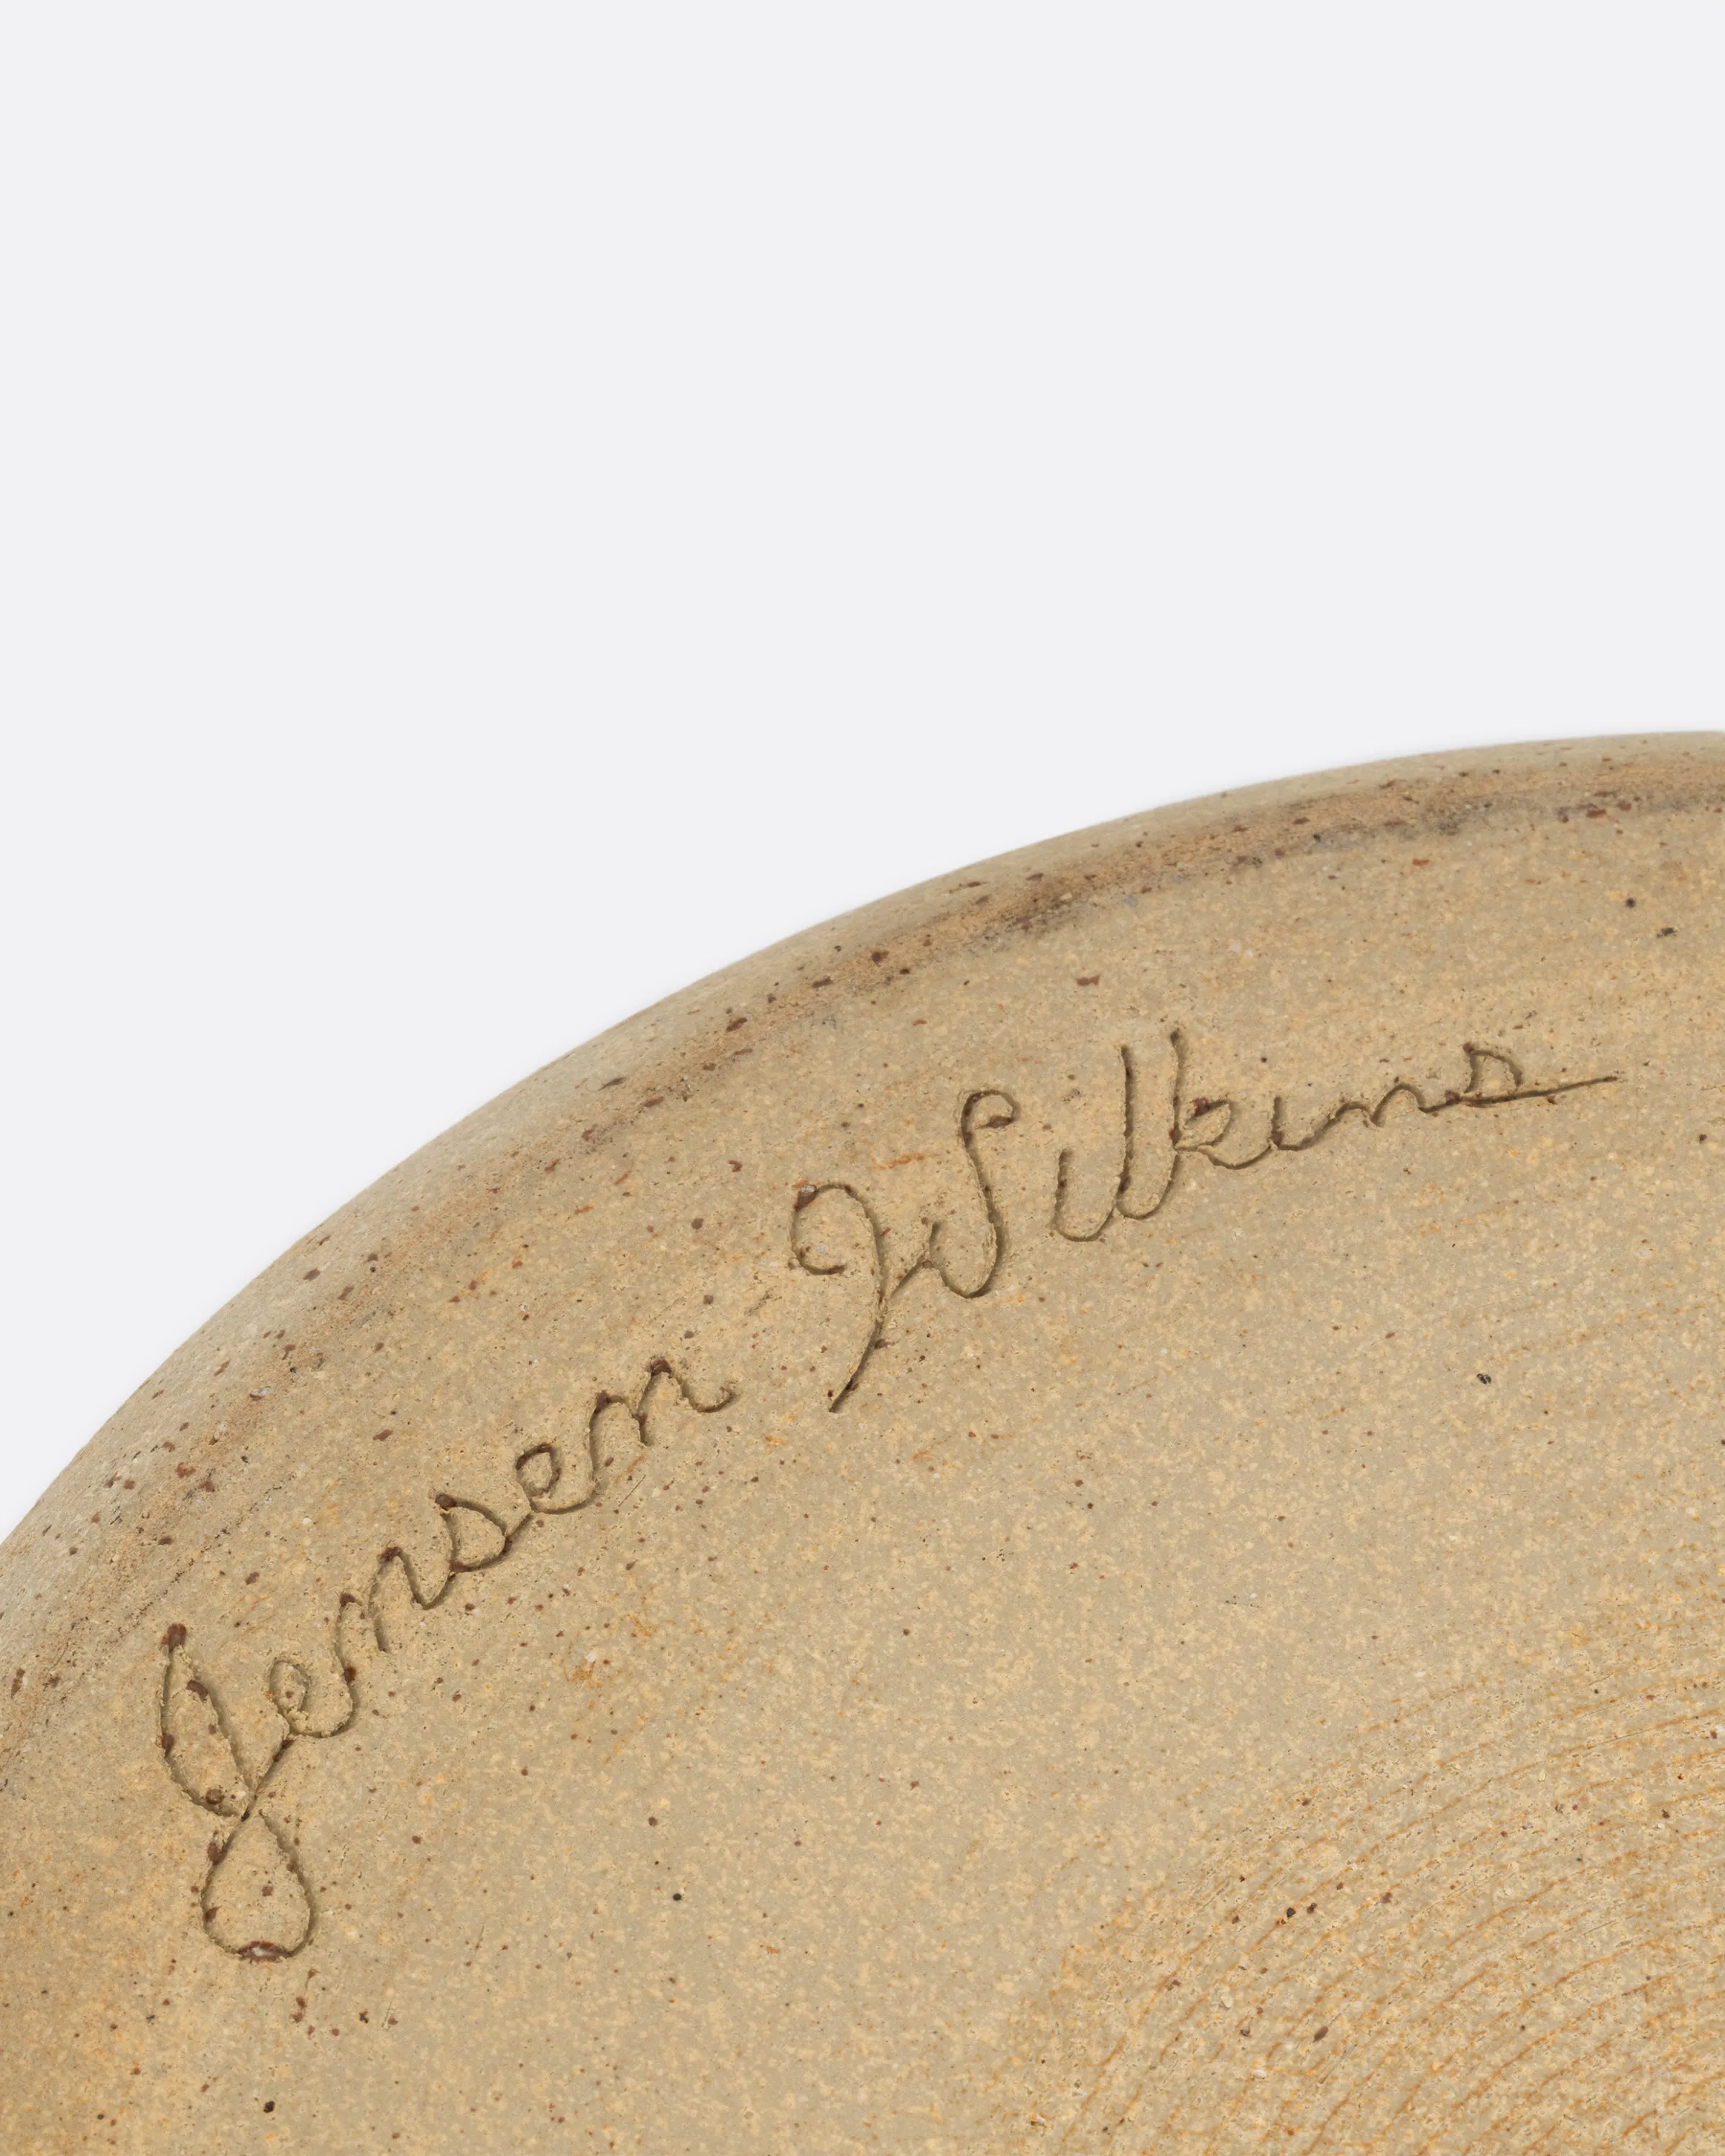 Jensen Wilkins